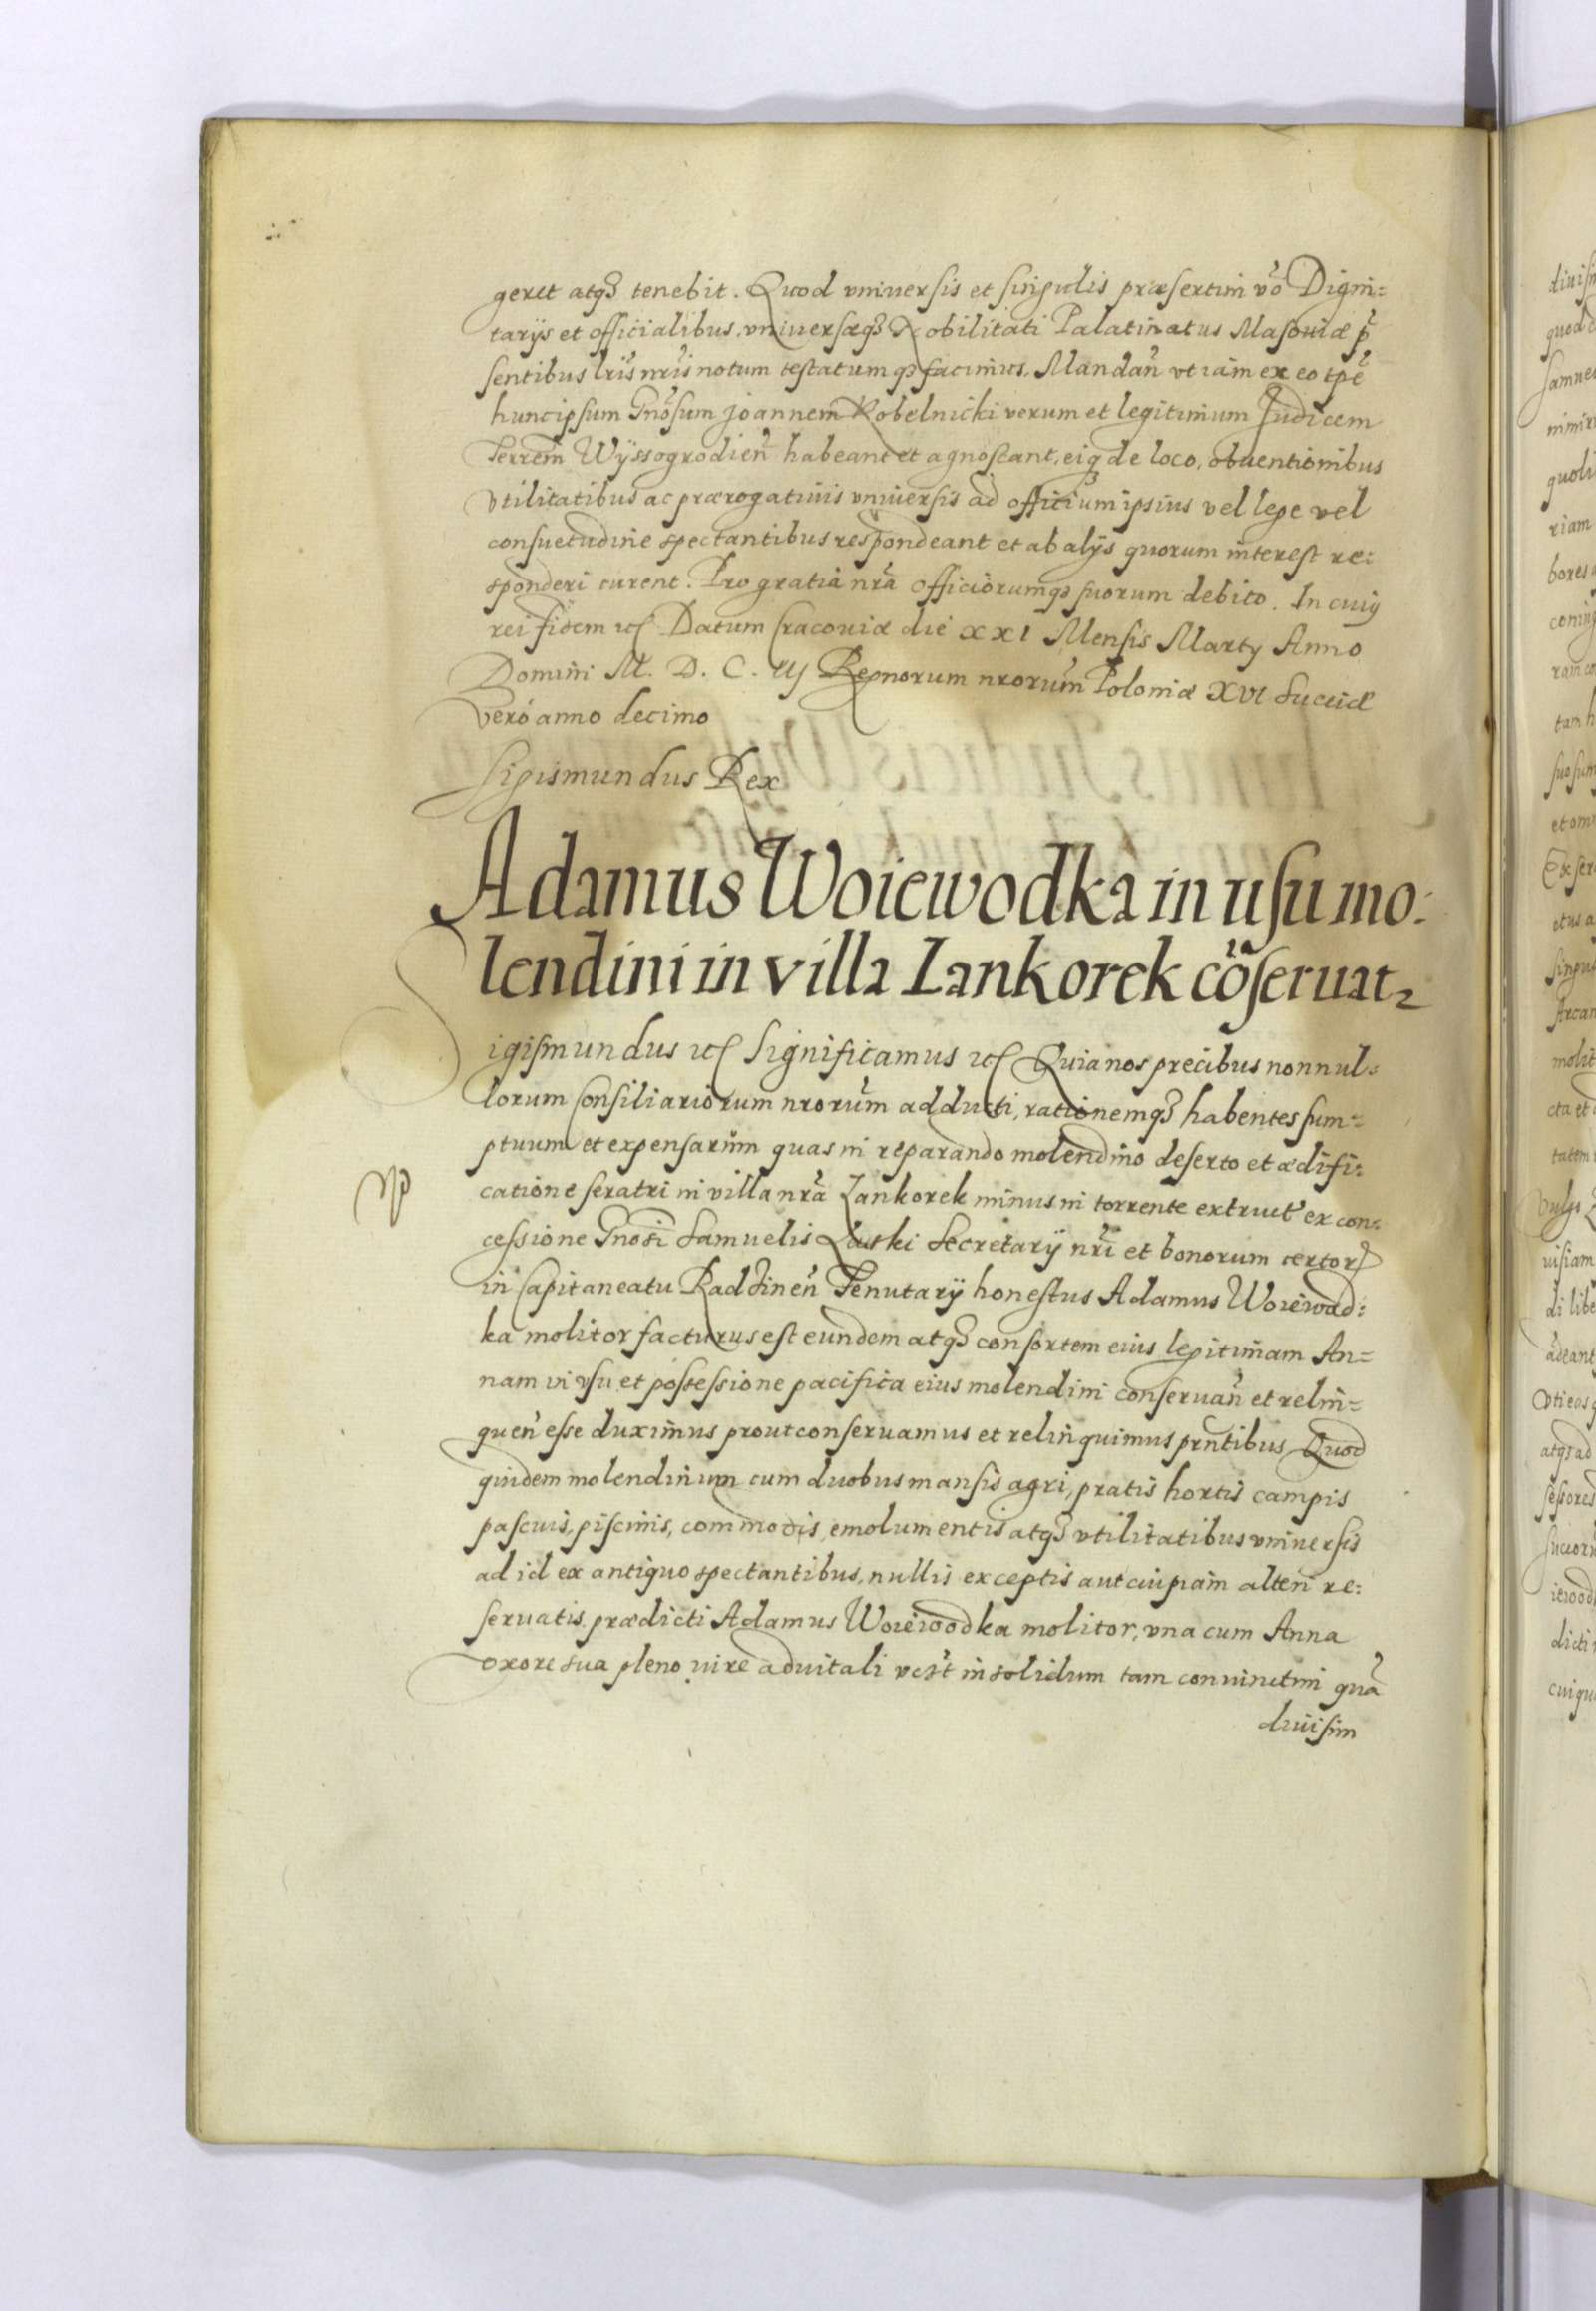 geret atq3 tenebit. Quod vniuersis et singulis præsertim vo Digni=
tarijs et officialibus, vniuersæq3 Nobilitati Palatinatus Masouiæ p
sentibus lris nris notum testatumq3 facimus. Mandan vt iam ex eo tpe
hunc ipsum Gnosum Joannem Kobelnicki verum et legitimum Judicem
Terrem Wyssogrodien habeant et agnoscant, eiq de loco, obuentionibus
vtilitatibus ac prærogatiuis vniuersis ad officium ipsius vel lege vel
consuetudine spectantibus respondeant et ab alijs quorum interest re:
sponderi curent. Pro gratia nra officiorumq3 suorum debito. In cuiq
rei fidem etc Datum Cracouiæ die XXI Mensis Marty Anno
Domini M. D. C. iij Regnorum nrorum Poloniæ XVI Sueciæ
vero anno decimo
Sigismundus Rex
Adamus Woiewodka in usu mo:
lendini in villa Lankorek coseruat
Sigismundus etc Significamus etc Quia nos precibus nonnul:
lorum Consiliariorum nrorum adducti, rationemq3 habentes sum=
ptuum et expensarum quas in reparando molendino deserto et ædifi:
catione seratri in villa nra Lankorek minus in torrente extruct ex con:
cessione Gnosi Samuelis Łaski Secretarij nri et bonorum certor
in Capitaneatu Radzinen Tenutarij honestus Adamus Woiewad:
ka molitor facturus est eundem atq3 consortem eius legitimam An=
nam in vsu et possessione pacifica eius molendini conseruan et relin=
quen esse duximus prout conseruamus et relinquimus prntibus Quod
quidem molendinum cum duobus mansis agri, pratis hortis campis
pascuis, piscinis, commodis, emolumentis atq3 vtilitatibus vniuersis
ad id ex antiquo spectantibus, nullis exceptis aut cuipiam alteri re:
seruatis prædicti Adamus Woiewodka molitor, vna cum Anna
vxore sua pleno iure aduitali in solidum tam coniunctim qua
diuisim